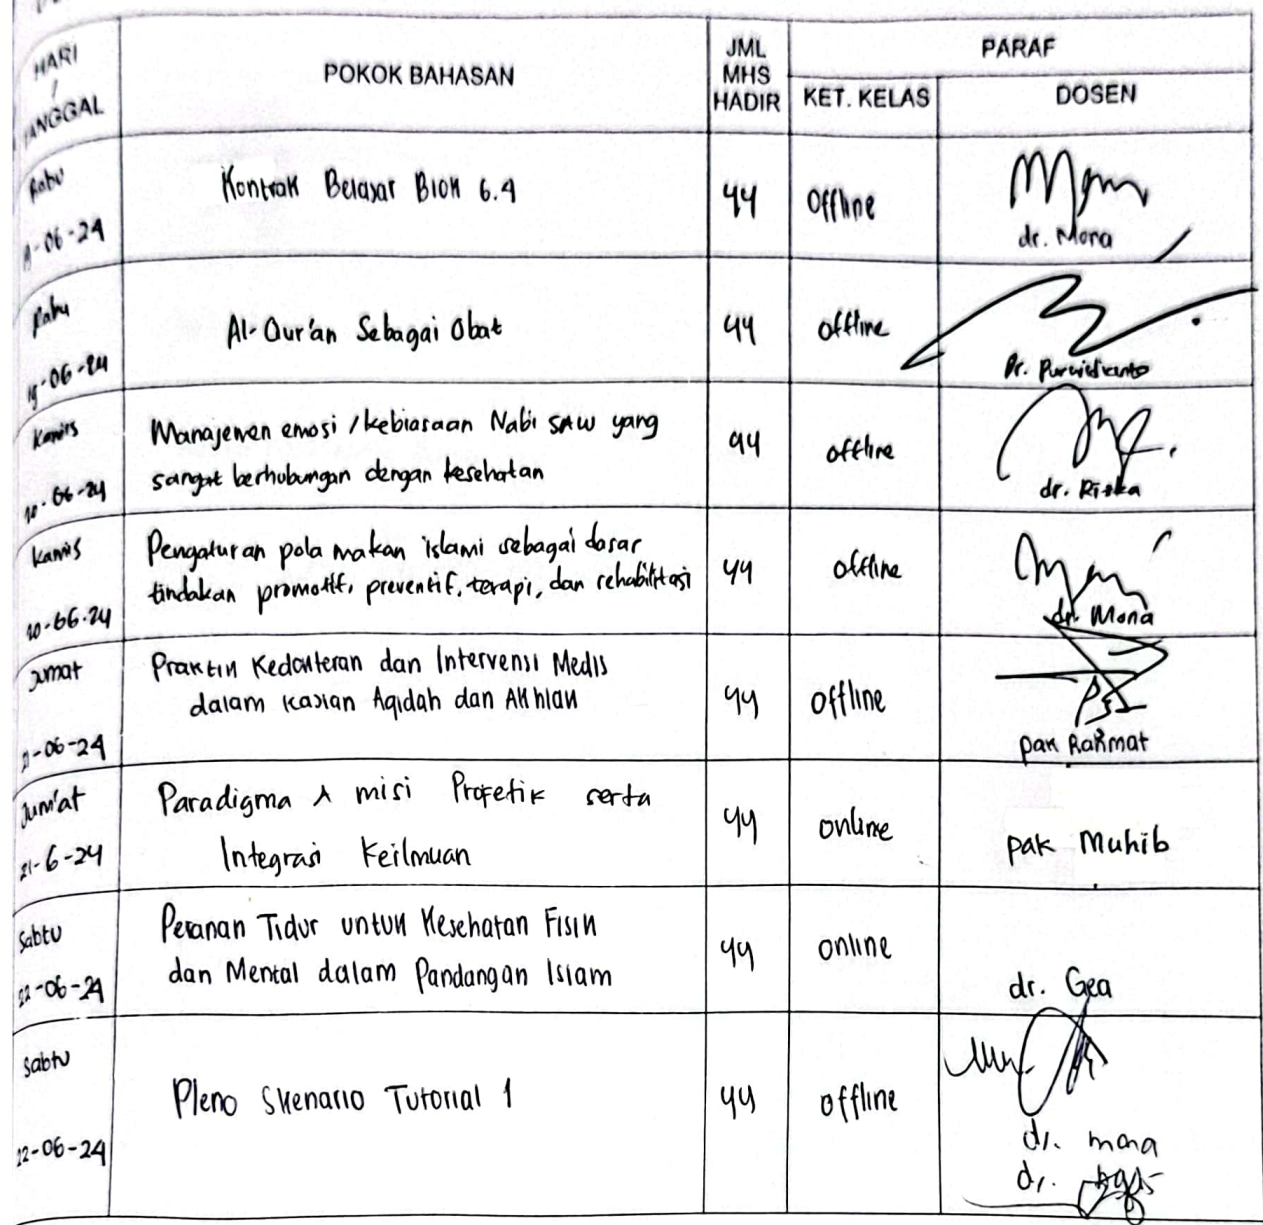 HARI
/
TANGGAL
POKOK BAHASAN
JML
MHS
HADIR
PARAF
KET. KELAS
DOSEN
Rabu
19-06-24
Kontrak Belajar Blok 6.4
44
Offline
dr. Mona
Rabu
19-06-24
Al-Qur'an Sebagai Obat
44
offline
Dr. Purwidianto
Kamis
20-06-24
Manajemen emosi /kebiasaan Nabi SAW yang
sangat berhubungan dengan kesehatan
44
offline
dr. Riska
Kamis
20-06-24
Pengaturan pola makan islami sebagai dasar
tindakan promotif, preventif, terapi, dan rehabilitasi
44
offline
dr. Mona
Jumat
21-06-24
Praktik Kedokteran dan Intervensi Medis
dalam Kajian Aqidah dan Akhlak
44
Offline
pak Rahmat
Jum'at
21-6-24
Paradigma & misi Profetik serta
Integrasi Keilmuan
44
online
pak Muhib
Sabtu
22-06-24
Peranan Tidur untuk Kesehatan Fisik
dan Mental dalam Pandangan Islam
44
online
dr. Gea
Sabtu
22-06-24
Pleno Skenario Tutorial 1
44
offline
dr. mona
dr.